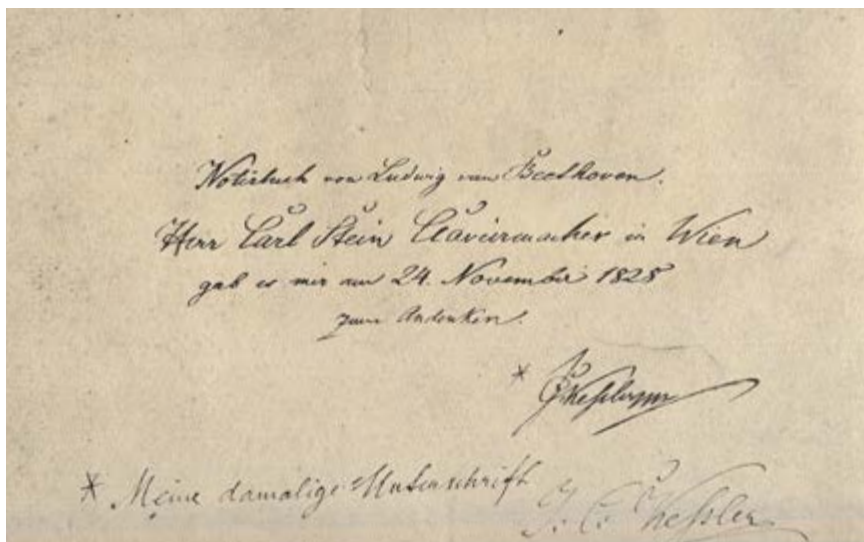 Notirbuch von Ludwig van Beethoven.
Herr Carl Stein Claviermacher in Wien
gab es mir am 24. November 1828
zum Andenken.
* Keßler
* Meine damalige Unterschrift J. C. Keßler